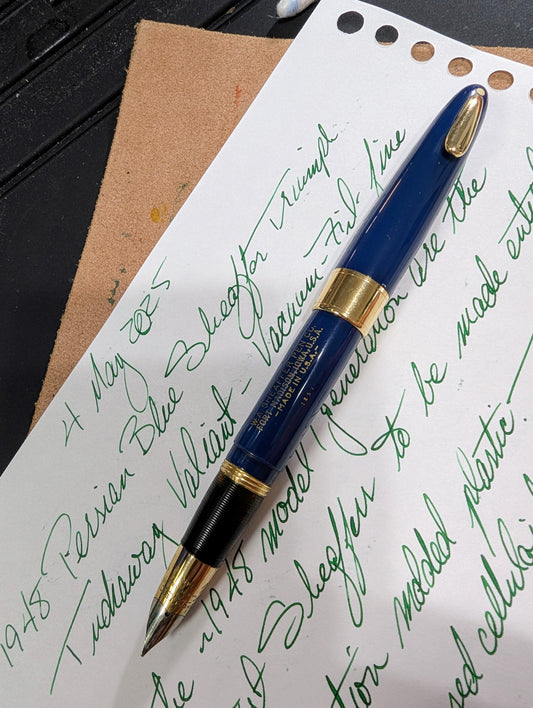 4 May 2025
1948 Persian Blue Sheaffer Triumph
Tuckaway Valiant - Vacuum-Fil fine
the ~1948 model / generation are the
Sheaffers to be made
tion molded plastic —
sed
W.A. SHEAFFER PEN CO.
FORT MADISON, IOWA, U.S.A.
-MADE IN U.S.A.-